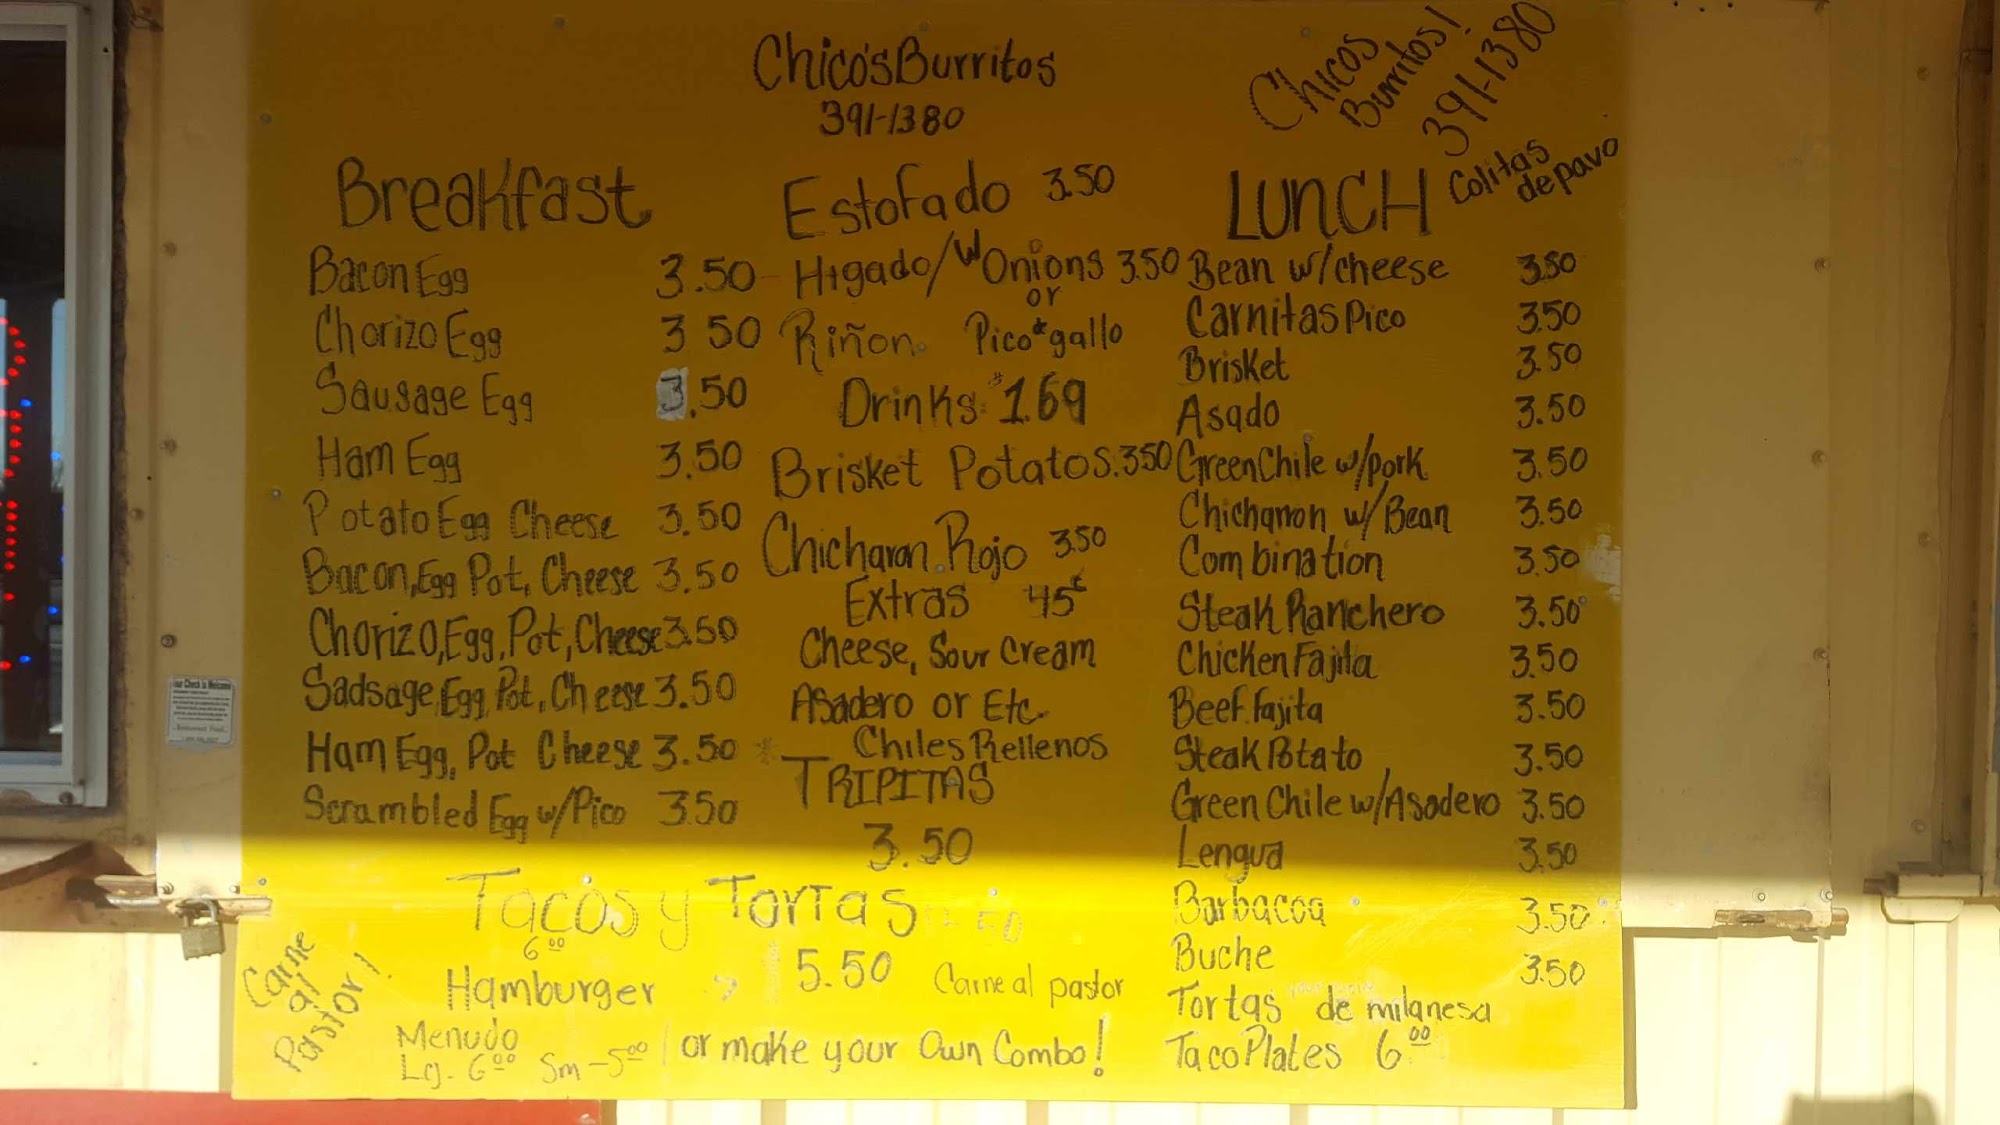 Chico's Burritos
391-1380
Chicos
Burritos!
391-1380
Colitas
de pavo
Breakfast
Bacon Egg 3.50
Chorizo Egg 3 50
Sausage Egg 3.50
Ham Egg 3.50
Potato Egg Cheese 3.50
Bacon, Egg Pot, Cheese 3.50
Chorizo, Egg, Pot, Cheese 3.50
Sadsage, Egg, Pot, Cheese 3.50
Ham Egg, Pot Cheese 3.50
Scrambled Egg w/Pico 3.50
Estofado 3.50
Higado/w Onions 3.50
or
Riñon Pico*gallo
Drinks $1.69
Brisket Potatos. 3.50
Chicharon Rojo 3.50
Extras 45¢
Cheese, Sour Cream
Asadero or Etc.
Chiles Rellenos
TRIPITAS
3.50
LUNCH
Bean w/cheese 3.50
Carnitas Pico 3.50
Brisket 3.50
Asado 3.50
Green Chile w/pork 3.50
Chicharron w/Bean 3.50
Combination 3.50
Steak Ranchero 3.50
Chicken Fajita 3.50
Beef fajita 3.50
Steak Potato 3.50
Green Chile w/Asadero 3.50
Lengua 3.50
Barbacoa 3.50
Buche 3.50
Tortas de milanesa
Taco Plates 6.00
Tacos y Tortas
6.00
Hamburger 5.50 Carne al pastor
Menudo
Lg. 6.00 Sm - 5.00 / or make your Own Combo!
Carne
al
Pastor!
Your Check is Welcome